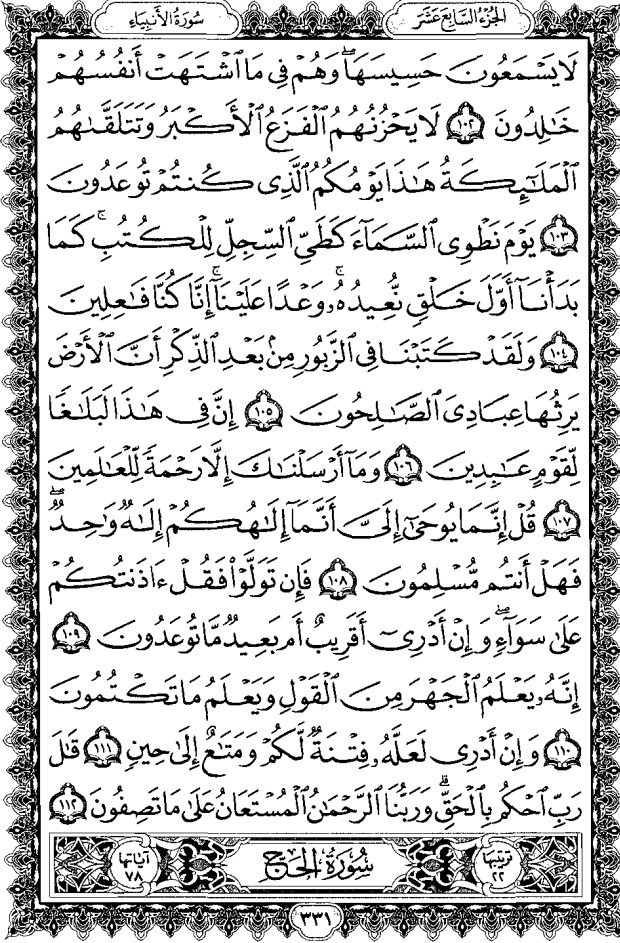 الجُزْءُ السَّابِعَ عَشَرَ
سُورَةُ الأَنبِيَاء
لَا يَسْمَعُونَ حَسِيسَهَاۖ وَهُمْ فِى مَا ٱشْتَهَتْ أَنفُسُهُمْ
خَٰلِدُونَ ١٠٢ لَا يَحْزُنُهُمُ ٱلْفَزَعُ ٱلْأَكْبَرُ وَتَتَلَقَّىٰهُمُ
ٱلْمَلَٰٓئِكَةُ هَٰذَا يَوْمُكُمُ ٱلَّذِى كُنتُمْ تُوعَدُونَ
١٠٣ يَوْمَ نَطْوِى ٱلسَّمَآءَ كَطَىِّ ٱلسِّجِلِّ لِلْكُتُبِۚ كَمَا
بَدَأْنَآ أَوَّلَ خَلْقٍ نُّعِيدُهُۥۚ وَعْدًا عَلَيْنَآۚ إِنَّا كُنَّا فَٰعِلِينَ
١٠٤ وَلَقَدْ كَتَبْنَا فِى ٱلزَّبُورِ مِنۢ بَعْدِ ٱلذِّكْرِ أَنَّ ٱلْأَرْضَ
يَرِثُهَا عِبَادِىَ ٱلصَّٰلِحُونَ ١٠٥ إِنَّ فِى هَٰذَا لَبَلَٰغًا
لِّقَوْمٍ عَٰبِدِينَ ١٠٦ وَمَآ أَرْسَلْنَٰكَ إِلَّا رَحْمَةً لِّلْعَٰلَمِينَ
١٠٧ قُلْ إِنَّمَا يُوحَىٰٓ إِلَىَّ أَنَّمَآ إِلَٰهُكُمْ إِلَٰهٌ وَٰحِدٌۖ
فَهَلْ أَنتُم مُّسْلِمُونَ ١٠٨ فَإِن تَوَلَّوْا۟ فَقُلْ ءَاذَنتُكُمْ
عَلَىٰ سَوَآءٍۖ وَإِنْ أَدْرِىٓ أَقَرِيبٌ أَم بَعِيدٌ مَّا تُوعَدُونَ ١٠٩
إِنَّهُۥ يَعْلَمُ ٱلْجَهْرَ مِنَ ٱلْقَوْلِ وَيَعْلَمُ مَا تَكْتُمُونَ
١١٠ وَإِنْ أَدْرِى لَعَلَّهُۥ فِتْنَةٌ لَّكُمْ وَمَتَٰعٌ إِلَىٰ حِينٍ ١١١ قَٰلَ
رَبِّ ٱحْكُم بِٱلْحَقِّۗ وَرَبُّنَا ٱلرَّحْمَٰنُ ٱلْمُسْتَعَانُ عَلَىٰ مَا تَصِفُونَ ١١٢
ترتيبها ٢٢
سُورَةُ الحَجّ
آياتها ٧٨
٣٣١